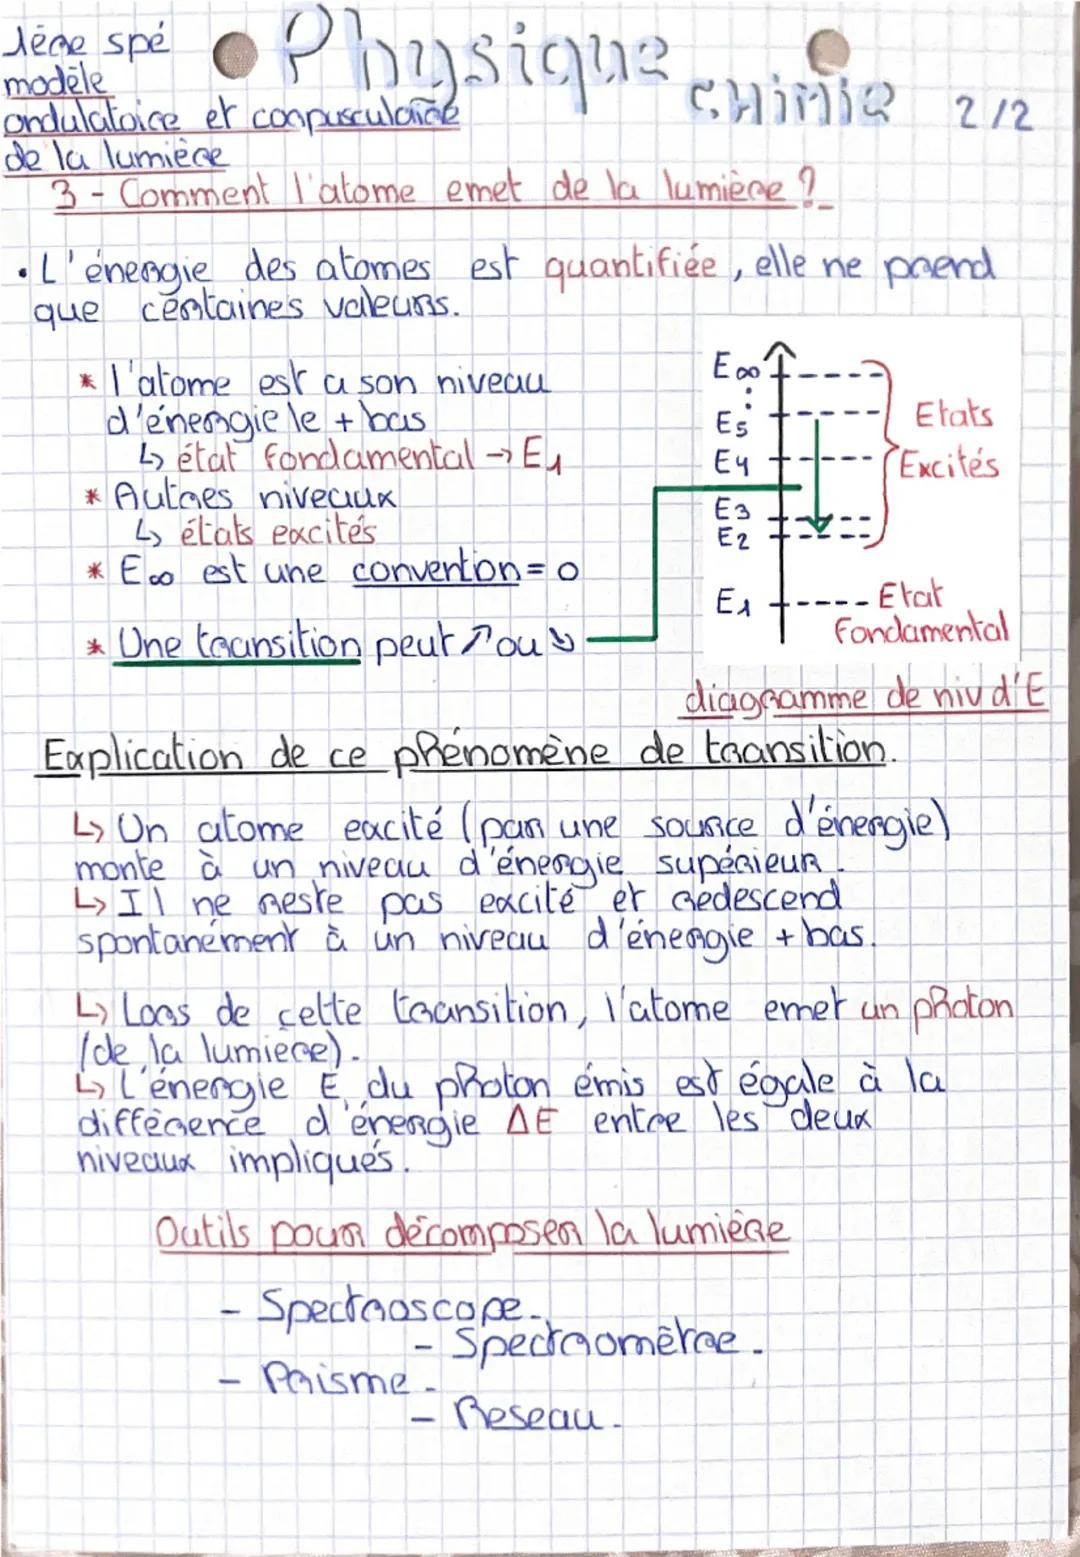 1ère spé
modèle
ondulatoire et corpusculaire
de la lumière
Physique
CHIMIE 2/2
3 - Comment l'atome emet de la lumière ?
• L'énergie des atomes est quantifiée, elle ne prend
que certaines valeurs.
* l'atome est a son niveau
d'énergie le + bas
↳ état fondamental → E1
* Autres niveaux
↳ états excités
* E∞ est une convention = 0
* Une transition peut ↗ ou ↘
E∞
E5
E4
E3
E2
E1
Etats
Excités
Etat
Fondamental
diagramme de niv d'E
Explication de ce phénomène de transition.
↳ Un atome excité (par une source d'énergie)
monte à un niveau d'énergie supérieur.
↳ Il ne reste pas excité et redescend
spontanément à un niveau d'énergie + bas.
↳ Lors de cette transition, l'atome emet un photon
(de la lumière).
↳ L'énergie E du photon émis est égale à la
différence d'énergie ΔE entre les deux
niveaux impliqués.
Outils pour décomposer la lumière
- Spectroscope.
- Spectromètre.
- Prisme.
- Reseau.